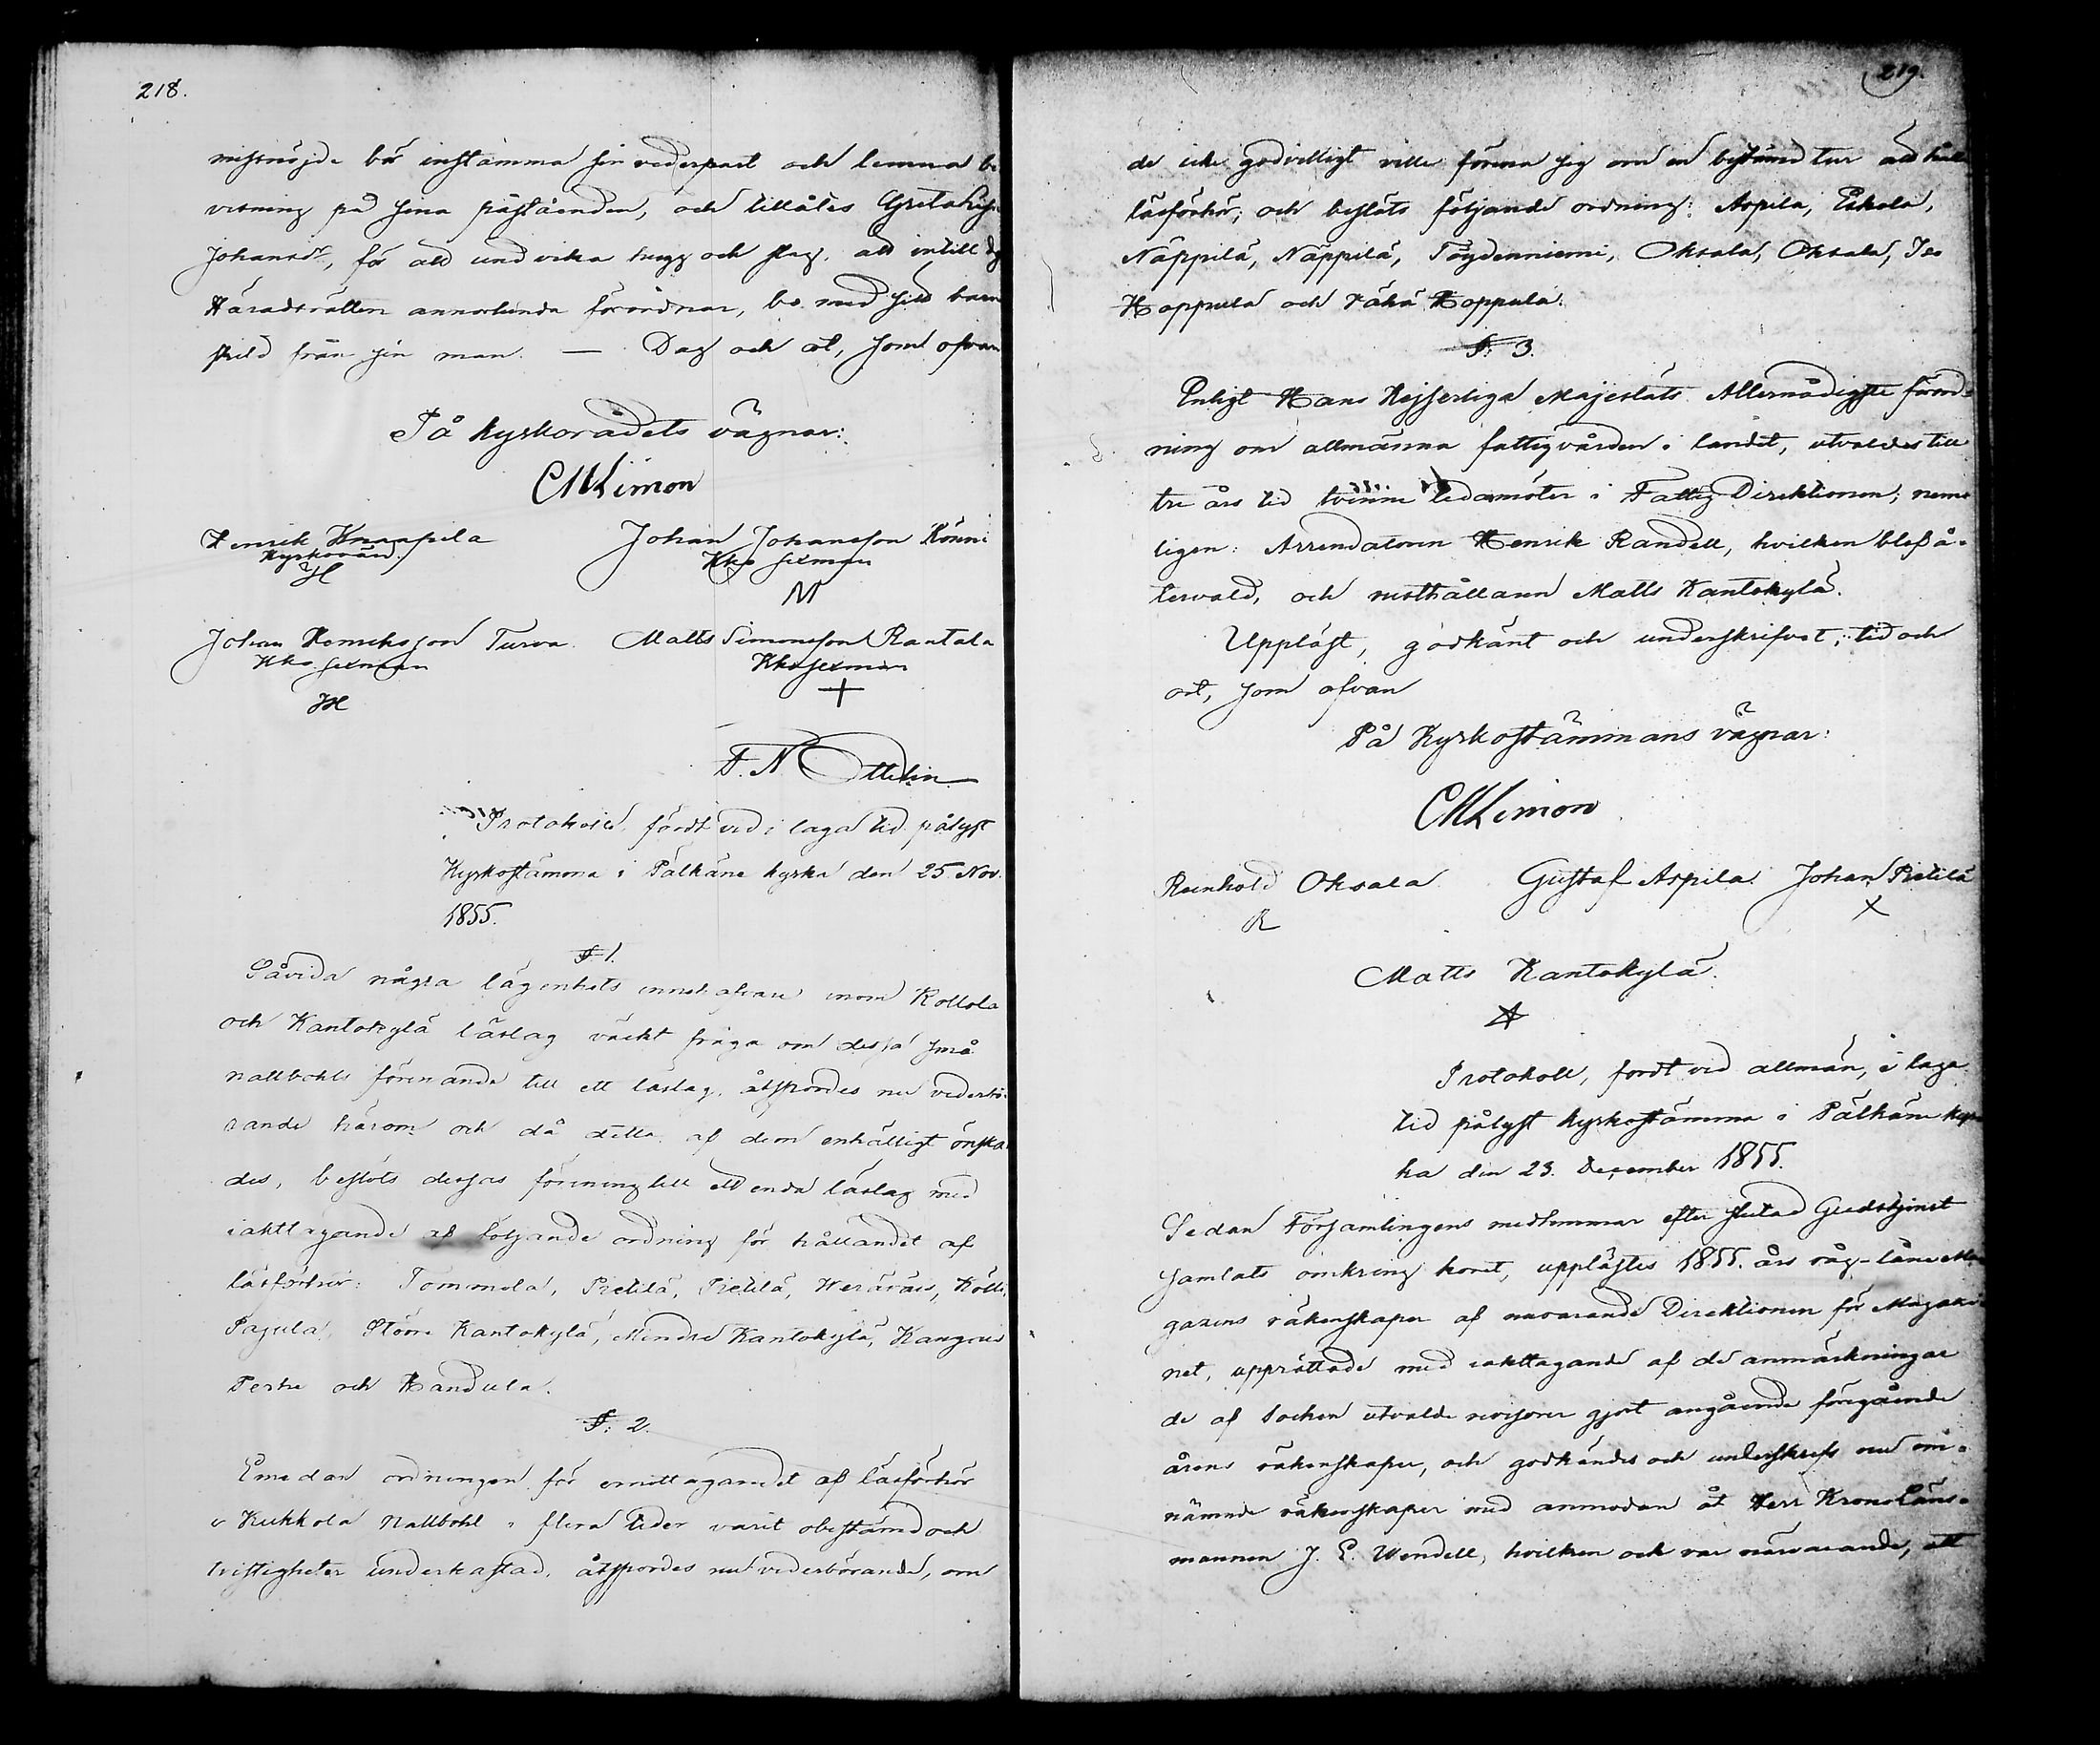 218.
missnöjde bör instämma sin vederpart och lemna be
visning på sina påståenden, och tillåtes Greta
Johansdr, för att undvika hugg och slag, att intill dess
Häradsrätten annorlunda förordnar, bo med sitt barn
skild från sin man. — Dag och ort, som ofvan
På kyrkorådets vägnar:
CMLimon
Henrik Knaapila Johan Johansson Rönni
Kyrkovärd. Kko sexman
H M
Johan Henriksson Turva. Matts Simonsson Rantala
Kko sexman Kko sexman
JH +
F. N. Ottelin
Protokoll, fördt vid i laga tid pålyst
Kyrkostämma i Pälkäne kyrka den 25 Nov.
1855.
§ 1.
Såvida några lägenhets innehafvare inom Kollola
och Kantokylä läslag väckt fråga om dessa små
nattbohls förenande till ett läslag, åtspordes nu vederbö-
rande härom och då detta af dem enhälligt önska
des, beslöts dessas förening till ett enda läslag med
iakttagande af följande ordning för hållandet af
läsförhör: Tommola, Pietilä, Pietilä, Weräväs, Kölli,
Pajula, Större Kantokylä, Mindre Kantokylä, Kangais
Perhe och Handula.
§. 2.
Emedan ordningen för emottagandet af läsförhör
i Kukkola Nattbohl i flera tider varit obestämd och
tvistigheter underkastad, åtspordes nu vederbörande, om
219.
de icke godvilligt ville förena sig om en bestämd tur att hålla
läsförhör; och beslöts följande ordning: Arpila, Eskola,
Näppilä, Näppilä, Töydenniemi, Oksala, Oksala, Iso
Hoppula och Vähä Hoppula.
§. 3.
Enligt Hans Kejserliga Majestäts Allernådigste förord-
ning om allmänna fattigvården i landet, utvaldes till
tre års tid tvenne ledamöter i Fattig Direktionen; neme
ligen: Arrendatorn Henrik Randell, hvilken blef å-
tervald, och rusthållaren Matts Kantokylä.
Uppläst, godkänt och underskrifvet; tid och
ort, som ofvan
På Kyrkostämmans vägnar:
CMLimon
Reinhold Oksala Gustaf Arpila Johan Pietilä
R X
Matts Kantokylä.
Protokoll, fördt vid allmän, i laga
tid pålyst kyrkostämma i Pälkäne kyr
ka den 23. December 1855.
Sedan Församlingens medlemmar efter slutad Gudstjenst
samlats omkring koret, upplästes 1855. års råg-låne Ma
gazins räkenskaper af nuvarande Direktionen för Magazi
net, upprättade med iakttagande af de anmärkningar
de af Socken utvalde revisorer gjort angående föregående
årens räkenskaper, och godkändes och underskrefs nu om-
nämnde räkenskaper med anmodan åt Herr Kronoläns-
mannen J. E. Wendell, hvilken ock var närvarande, att